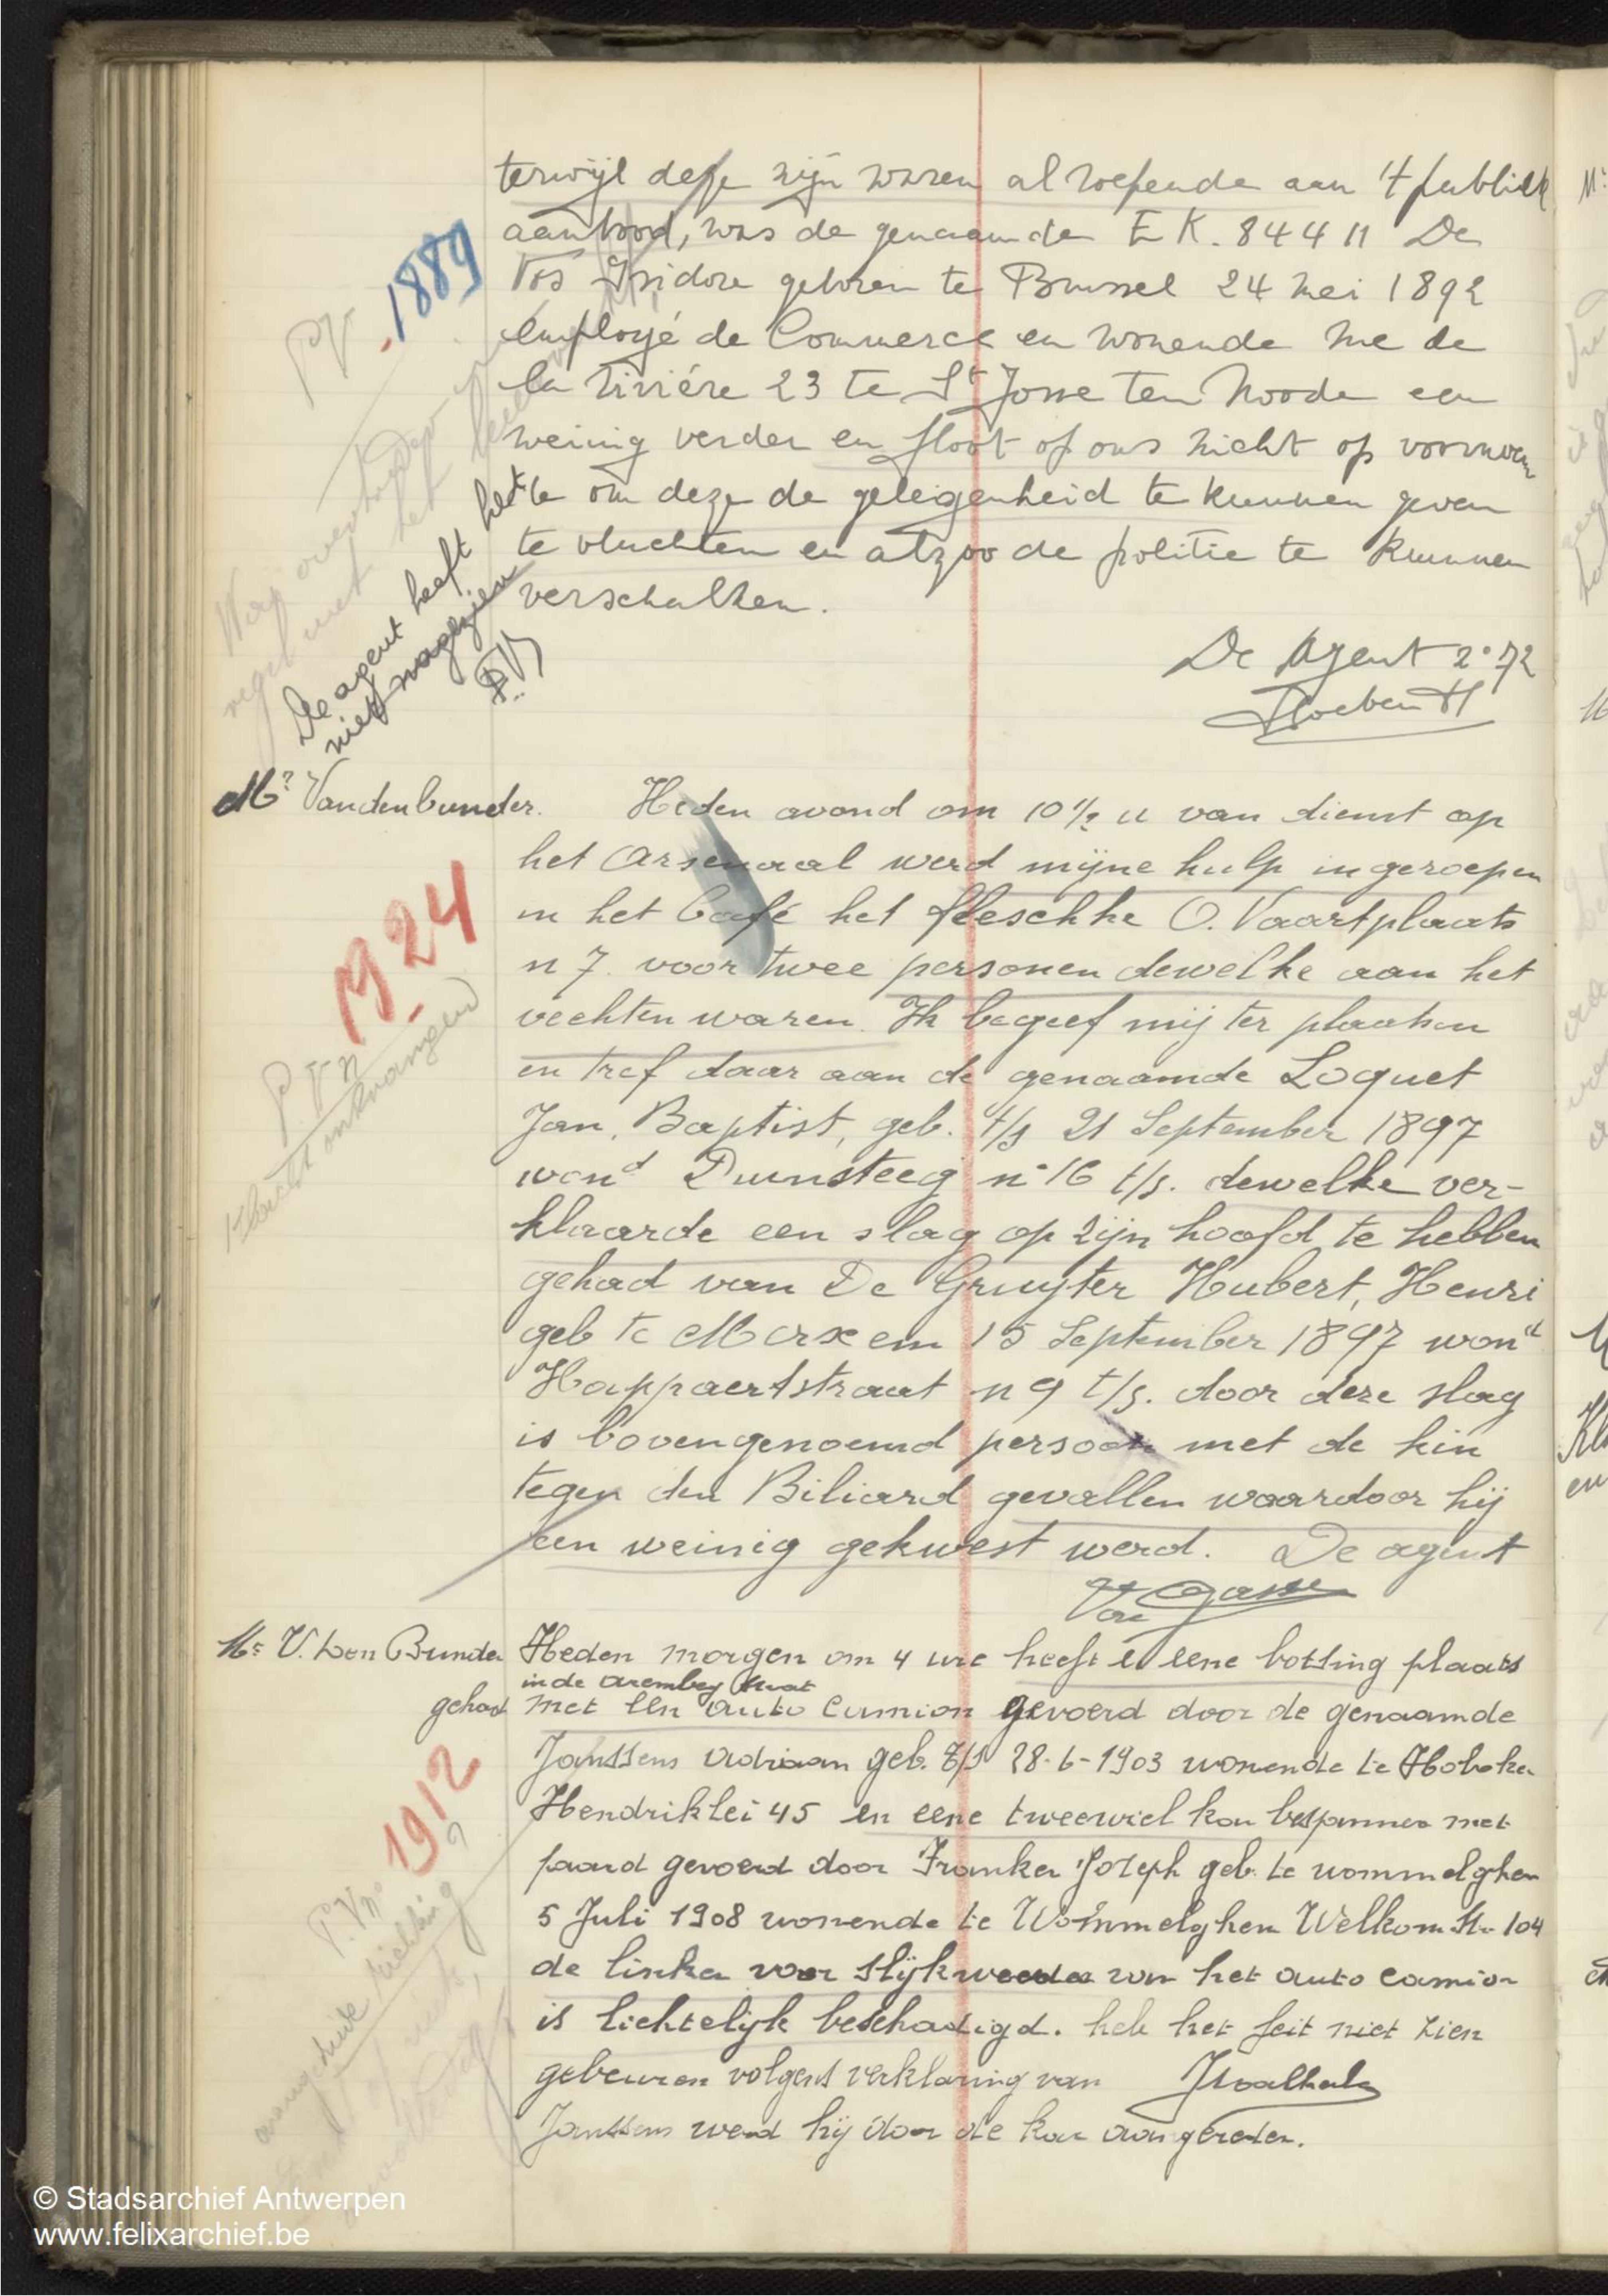 terwijl deze zijn waren al roepende aan 't publiek
aanbood, was de genaamde E K. 84411 De
Vos Isidore geboren te Brussel 24 mei 1892
employé de Commerce en wonende rue de
la rivière 23 te St Josse ten Noode een
weinig verder en floot of ons nicht op voornoem
de om deze de gelegenheid te kunnen geven
te vluchten en alzoo de politie te kunnen
verschalken.
De Agent 2°72
P.V. 1889
De agent heeft het
niet nagezien
P.V.
Mr Vandenbunder.
Heden avond om 10½ u van dienst op
het Arsenaal werd mijne hulp ingeroepen
in het Café het fleschke O. Vaartplaats
n 7. voor twee personen dewelke aan het
vechten waren. Ik begeef mij ter plaatsen
en tref daar aan de genaamde Loquet
Jan, Baptist, geb. t/s 21 September 1897
wond Duinsteeg n° 16 t/s. dewelke ver-
klaarde een slag op zijn hoofd te hebben
gehad van De Gruyter Hubert, Henri
geb te Merxem 15 September 1897 wond
Happaertstraat n 9 t/s. door deze slag
is bovengenoemd persoon met de kin
tegen den Biliard gevallen waardoor hij
een weinig gekwest werd. De agent
P.V n 1924
Klacht ontvangen
Mr V. den Bunder
Heden morgen om 4 ure heeft er eene botsing plaats
in de Aremberg straat
gehad met een auto camion gevoerd door de genaamde
Janssens Adriaan geb. t/s 28-6-1903 wonende te Hoboken
Hendriklei 45 en eene tweewiel kar bespannen met
paard gevoerd door Franken Joseph geb. te wommelghem
5 Juli 1908 wonende te Wommelghem Welkom str 104
de linker voor slijkweerder van het auto camion
is lichtelijk beschadigd. heb het feit niet zien
gebeuren volgens verklaring van
Janssens werd hij door de kar aangereden.
P.V n° 1912
© Stadsarchief Antwerpen
www.felixarchief.be